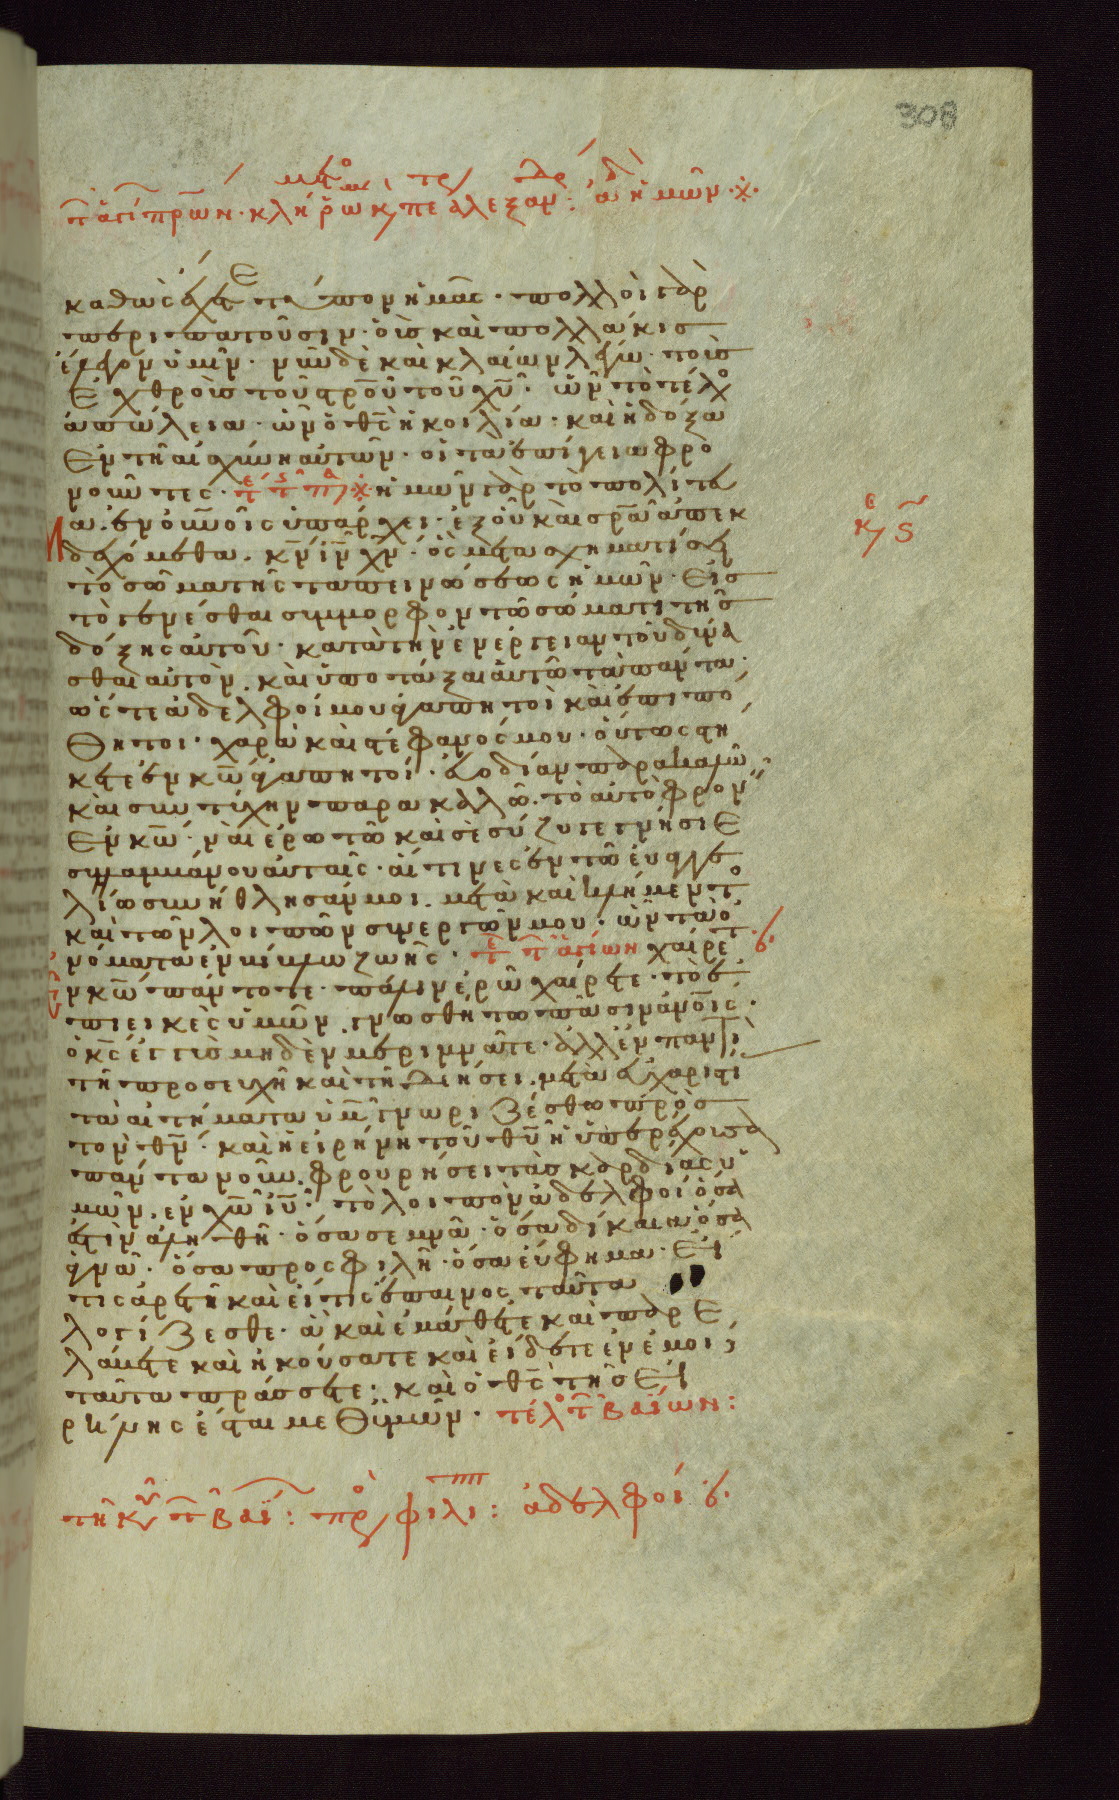 308
καθὼς ἔχετε τύπον ἡμᾶς · πολλοὶ γὰρ
περιπατοῦσιν · οὓς καὶ πολλάκις
ἔλεγον ὑμῖν · νῦν δὲ καὶ κλαίων λέγω · τοὺς
ἐχθροὺς τοῦ σταυροῦ τοῦ χυ · ὧν τὸ τέλος
ἀπώλεια · ὧν ὁ θς ἡ κοιλία · καὶ ἡ δόξα
ἐν τῇ αἰσχύνῃ αὐτῶν · οἱ τὰ ἐπίγεια φρο
νοῦντες · ἡμῶν γὰρ τὸ πολίτευμ
α ἐν οὐνοῖς ὑπάρχει · ἐξ οὗ καὶ σρα ἀπεκ
δεχόμεθα · κν ιν χν · ὃς μετασχηματίσει
τὸ σῶμα τῆς ταπεινώσεως ἡμῶν · εἰς
τὸ γενέσθαι σύμμορφον τῶ σώματι τῆς
δόξης αὐτοῦ · κατὰ τὴν ἐνέργειαν τοῦ δύνα
σθαι αὐτὸν · καὶ ὑποτάξαι αὐτῶ τὰ πάντα ·
ὥστε ἀδελφοί μου ἀγαπητοὶ καὶ ἐπιπό
θητοι · χαρὰ καὶ στέφανός μου · οὕτως στή
κετε ἐν κω ἀγαπητοί · εὐοδίαν παρακαλῶ
καὶ συντύχην παρακαλῶ · τὸ αὐτὸ φρον
ἐν κω · ναὶ ἐρωτῶ καὶ σὲ σύζυγε γνήσιε
συλλαμβάνου αὐταῖς · αἵτινες ἐν τῶ εὐαγγε
λίω συνήθλησάν μοι · μετὰ καὶ κλήμεντος
καὶ τῶν λοιπῶν συνεργῶν μου · ὧν τὰ ὀ
νόματα ἐν βίβλω ζωῆς · χαίρετε
ἐν κω πάντοτε · πάλιν ἐρῶ χαίρετε · τὸ ἐ
πιεικὲς ὑμῶν · γνωσθήτω πᾶσιν ἀνοις ·
ὁ κς ἐγγὺς μηδὲν μεριμνᾶτε · ἀλλ' ἐν παντὶ
τῇ προσευχῇ καὶ τῇ δεήσει · μετὰ εὐχαριστί
τὰ αἰτήματα ὑμῶν γνωριζέσθω πρὸς
τὸν θν · καὶ ἡ εἰρήνη τοῦ θυ ἡ ὑπερέχουσα
πάντα νοῦν · φρουρήσει τὰς καρδίας ὑ
μῶν · ἐν χω ιυ · τὸ λοιπὸν ἀδελφοί ὅσα
ἐστὶν ἀληθῆ · ὅσα σεμνά · ὅσα δίκαια ὅσα
ἁγνά · ὅσα προσφιλῆ · ὅσα εὔφημα · εἴ
τις ἀρετὴ καὶ εἴ τις ἔπαινος ταῦτα
λογίζεσθε · ἃ καὶ ἐμάθετε καὶ παρε
λάβετε καὶ ἠκούσατε καὶ εἴδετε ἐν ἐμοί ,
ταῦτα πράσσετε : καὶ ὁ θς τῆς εἰ
ρήνης ἔσται μεθ' ὑμῶν · τέλος τ βαΐων :
τῆ κυ τ βαΐ : πρ φιλι : ἀδελφοί